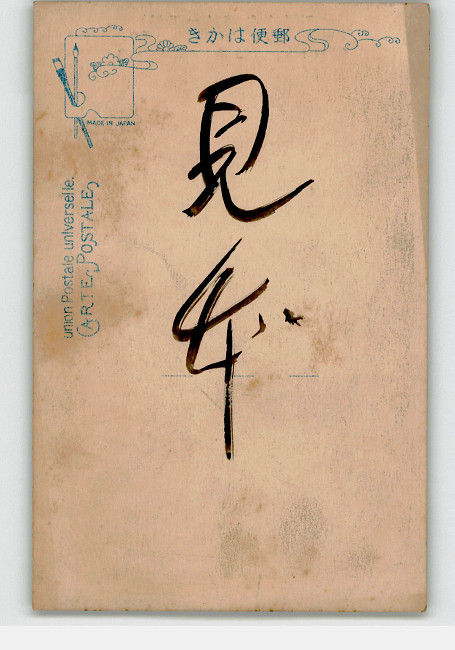 郵便はかき
MADE IN JAPAN
union Postale universelle.
CARTE POSTALE
見本